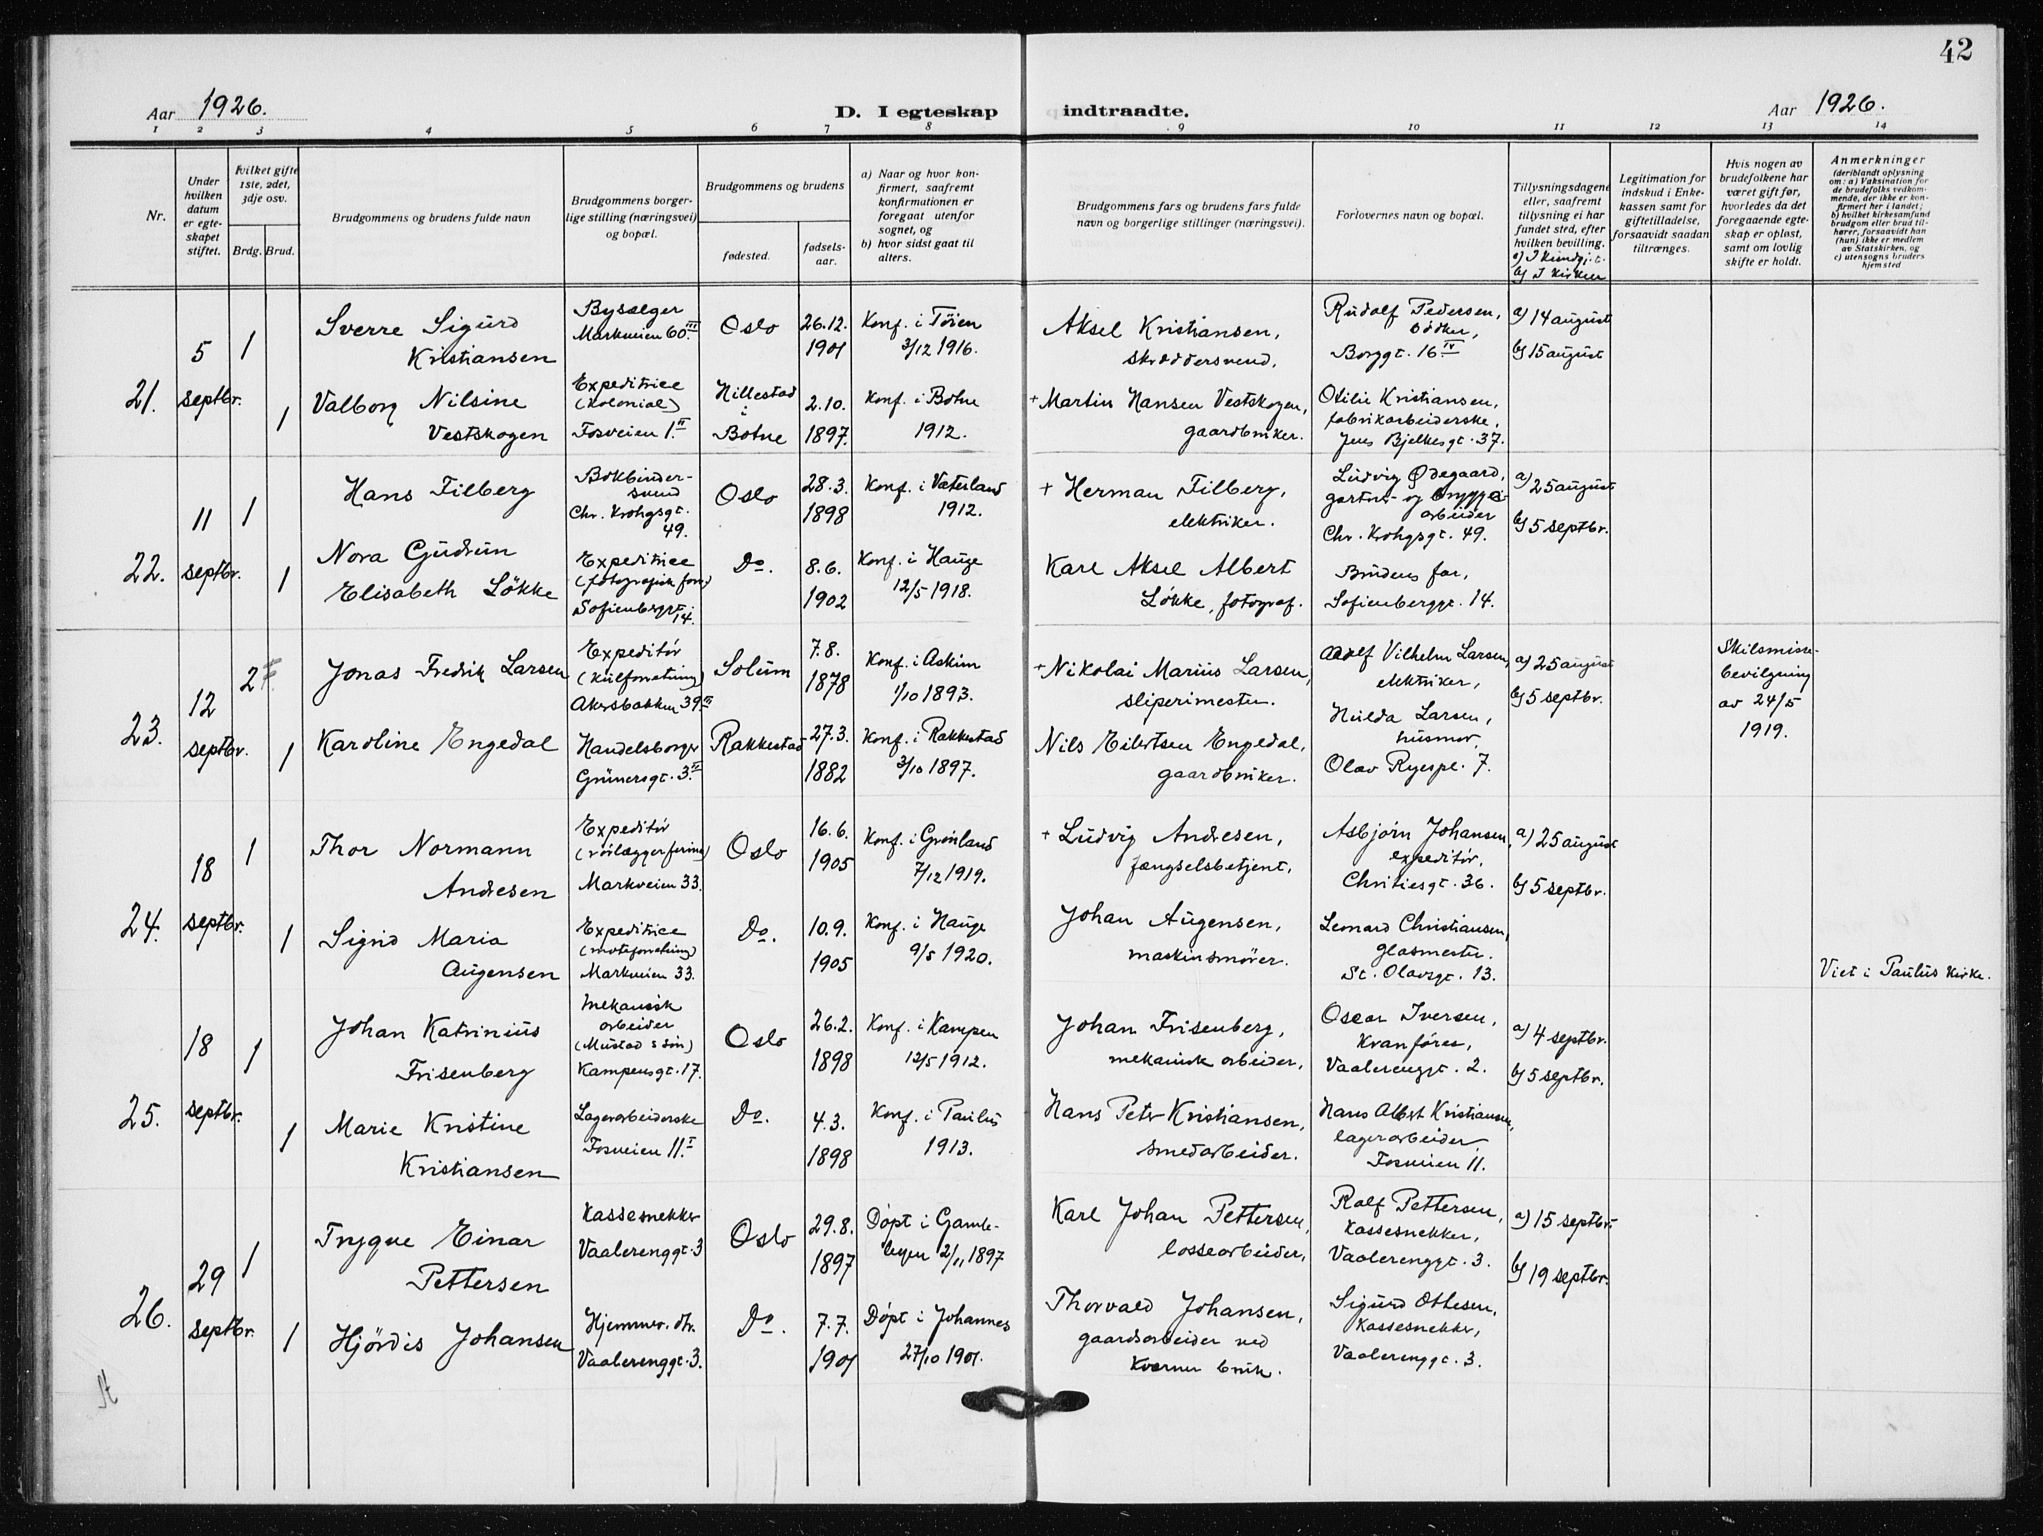 42
Aar 1926.
D. I egteskap indtraadte.
Aar 1926.
1 2 3 4 5 6 7 8 9 10 11 12 13 14
Nr.
Under hvilken datum er egteskapet stiftet.
Hvilket gifte 1ste, 2det, 3dje osv.
Brdg. Brud.
Brudgommens og brudens fulde navn
Brudgommens borgerlige stilling (næringsvei) og bopæl.
Brudgommens og brudens
fødested.
fødselsaar.
a) Naar og hvor konfirmert, saafremt konfirmationen er foregaat utenfor sognet, og
b) hvor sidst gaat til alters.
Brudgommens fars og brudens fars fulde navn og borgerlige stillinger (næringsvei).
Forlovernes navn og bopæl.
Tillysningsdagene eller, saafremt tillysning ei har fundet sted, efter hvilken bevilling.
a) I Kundgj.t.
b) I Kirken
Legitimation for indskud i Enkekassen samt for giftetilladelse, forsaavidt saadan tiltrænges.
Hvis nogen av brudefolkene har været gift før, hvorledes da det foregaaende egteskap er opløst, samt om lovlig skifte er holdt.
Anmerkninger
(deriblandt oplysning om: a) Vaksination for de brudefolks vedkommende, der ikke er konfirmert her i landet; b) hvilket kirkesamfund brudgom eller brud tilhører, forsaavidt han (hun) ikke er medlem av Statskirken, og c) utensogns bruders hjemsted
21.
5 septbr.
1
Sverre Sigurd
Kristiansen
Bysælger
Markveien 60 III
Oslo
26.12.
1901
Konf. i Tøien
3/12 1916.
Aksel Kristiansen,
skræddersvend.
Rudolf Pedersen,
bødker,
Borggt. 16 IV
a) 14 august
b) 15 august
1
Valborg Nilsine
Vestskogen
Expeditrice
(kolonial)
Fosveien 1. II
Hillestad
i
Botne
2.10.
1897.
Konf. i Botne
1912.
+ Martin Hansen Vestskogen,
gaardbruker.
Otilie Kristiansen,
fabrikarbeiderske,
Jens Bjelkesgt. 37.
22.
11 septbr.
1
Hans Filberg
Bokbinder-
svend
Chr. Krohgsgt.
49.
Oslo
28.3.
1898
Konf. i Vaterland
1912.
+ Herman Filberg,
elektriker.
Ludvig Ødegaard,
gartner- og brygge-
arbeider
Chr. Krohgsgt. 49.
a) 25 august
b) 5 septbr.
1
Nora Gudrun
Elisabeth Løkke
Expeditrice
(fotografisk forr.)
Sofienberggt.
14.
Do.
8.6.
1902
Konf. i Hauge
12/5 1918.
Karl Aksel Albert
Løkke, fotograf.
Brudens far,
Sofienberggt. 14.
23.
12 septbr.
2
Jonas Fredrik Larsen
Expeditør
(kulforretning)
Akersbakken 39 III
Solum
7.8.
1878
Konf. i Askim
1/10 1893.
+ Nikolai Marius Larsen,
sliperimester.
Adolf Vilhelm Larsen,
elektriker,
a) 25 august
b) 5 septbr.
Skilsmisse-
bevilgning
av 24/5
1919.
1
Karoline Engedal
Handelsborger
Grünersgt. 3. IV
Rakkestad
27.3.
1882
Konf. i Rakkestad
3/10 1897.
Nils Eilertsen Engedal,
gaardbruker.
Hulda Larsen,
husmor,
Olav Ryespl. 7.
24.
18 septbr.
1
Thor Normann
Andresen
Expeditør
(rørlæggerfirma)
Markveien 33.
Oslo
16.6.
1905
Konf. i Grønland
7/12 1919.
+ Ludvig Andresen,
fængselsbetjent.
Asbjørn Johansen,
expeditør,
Christiesgt. 36.
a) 25 august
b) 5 septbr.
1
Sigrid Maria
Augensen
Expeditrice
(moteforretning)
Markveien 33.
Do.
10.9.
1905
Konf. i Hauge
9/5 1920.
Johan Augensen,
maskinsmører.
Leonard Christiansen,
glasmester.
St. Olavsgt. 13.
Viet i Paulus kirke.
25.
18 septbr.
1
Johan Katrinius
Frisenberg
Mekanisk
arbeider
(Mustad & Søn)
Kampensgt. 17.
Oslo
26.2.
1898
Konf. i Kampen
12/5 1912.
Johan Frisenberg,
mekanisk arbeider,
Oscar Iversen,
Kranfører,
Vaalerenggt. 2.
a) 4 septbr.
b) 5 septbr.
1
Marie Kristine
Kristiansen
Lagerarbeiderske
Fosveien 11. I
Do.
4.3.
1898
Konf. i Paulus
1913.
Hans Peter Kristiansen,
smedarbeider.
Hans Albert Kristiansen,
lagerarbeider,
Fosveien 11.
26.
29 septbr.
1
Trygve Einar
Pettersen
Kassesnekker
Vaalerenggt. 3
Oslo
29.8.
1897
Døpt i Gamle-
byen 2/11 1897
Karl Johan Pettersen,
lossearbeider,
Ralf Pettersen,
Kassesnekker,
Vaalerenggt. 3.
a) 15 septbr.
b) 19 septbr.
1
Hjørdis Johansen
Hjemmev. dtr.
Vaalerenggt. 3.
Do.
7.7.
1901
Døpt i Johannes
27/10 1901.
Thorvald Johansen,
gaardsarbeider ved
Kværner bruk.
Sigurd Ottesen,
Kassesnekker,
Vaalerenggt. 3.